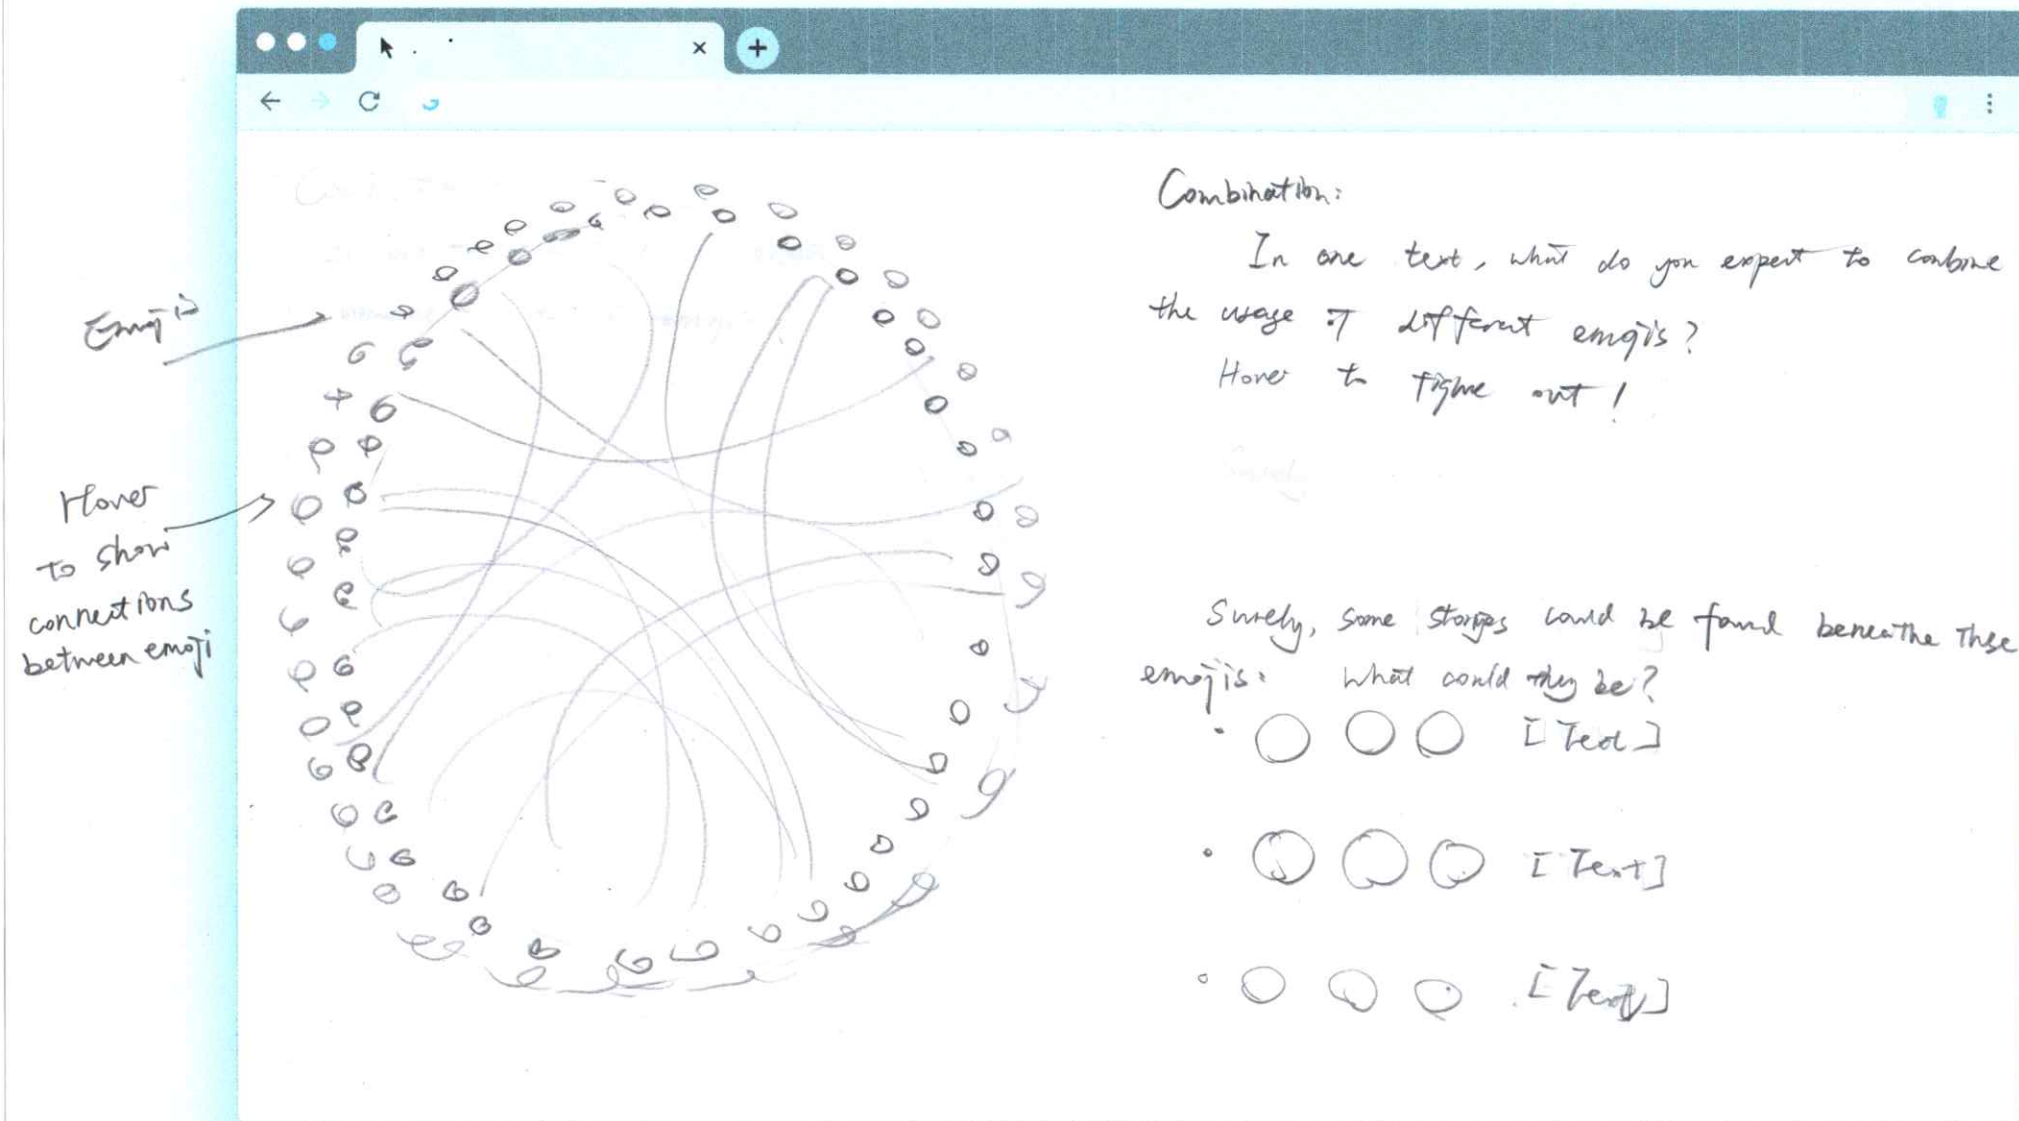 Emojis
Hover
to show
connections
between emoji
Combination:
In one text, what do you expect to combine
the usage of different emojis?
Hover to figure out!
Surely, some stories could be found beneathe these
emojis. What could they be?
[Text]
[Text]
[Text]